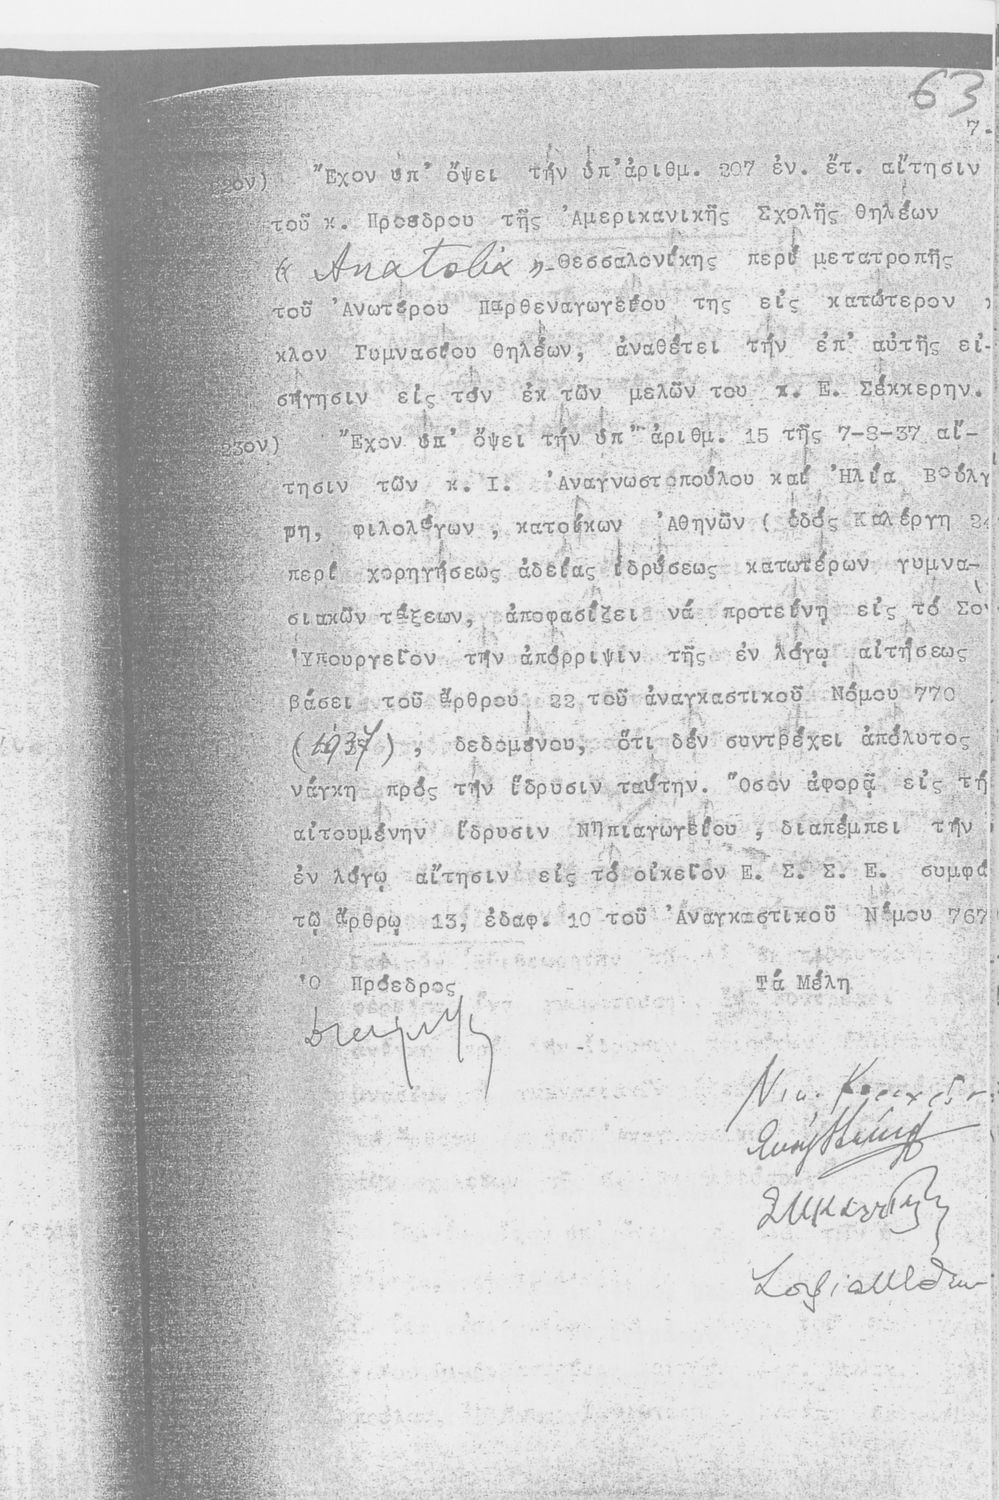 63
7.
2ον) Ἔχον ὑπ' ὄψει τήν ὑπ'ἀριθμ. 207 ἐν. ἔτ. αἴτησιν
τοῦ κ. Προεδρου τῆς Ἀμερικανικῆς Σχολῆς θηλέων
« Anatolia »-Θεσσαλονίκης περί μετατροπῆς
τοῦ Ἀνωτέρου Παρθεναγωγείου της εἰς κατώτερον
κλον Γυμνασίου θηλέων, ἀναθέτει τήν ἐπ' αὐτῆς εἰ-
σήγησιν εἰς τόν ἐκ τῶν μελῶν του κ. Ε. Σέκκερην.
23ον) Ἔχον ὑπ' ὄψει τήν ὑπ' ἀριθμ. 15 τῆς 7-8-37 αἴ-
τησιν τῶν κ. Ι. Ἀναγνωστοπούλου καί Ἠλία Βούλγ
ρη, φιλολόγων , κατοίκων Ἀθηνῶν ( ὁδός Καλέργη 24
περί χορηγήσεως ἀδείας ἱδρύσεως κατωτέρων γυμνα-
σιακῶν τάξεων, ἀποφασίζει νά προτείνῃ εἰς τό Σον
Ὑπουργεῖον τήν ἀπόρριψιν τῆς ἐν λόγῳ αἰτήσεως
βάσει τοῦ ἄρθρου 22 τοῦ ἀναγκαστικοῦ Νόμου 770
(1937) , δεδομένου, ὅτι δέν συντρέχει ἀπόλυτος
νάγκη πρός τήν ἵδρυσιν ταύτην. Ὅσον ἀφορᾷ εἰς τή
αἰτουμένην ἵδρυσιν Νηπιαγωγείου , διαπέμπει τήν
ἐν λόγῳ αἴτησιν εἰς τό οἰκεῖον Ε. Σ. Σ. Ε. συμφώ
τῷ ἄρθρῳ 13, ἐδαφ. 10 τοῦ Ἀναγκαστικοῦ Νόμου 767
Ὁ Πρόεδρος Τά Μέλη